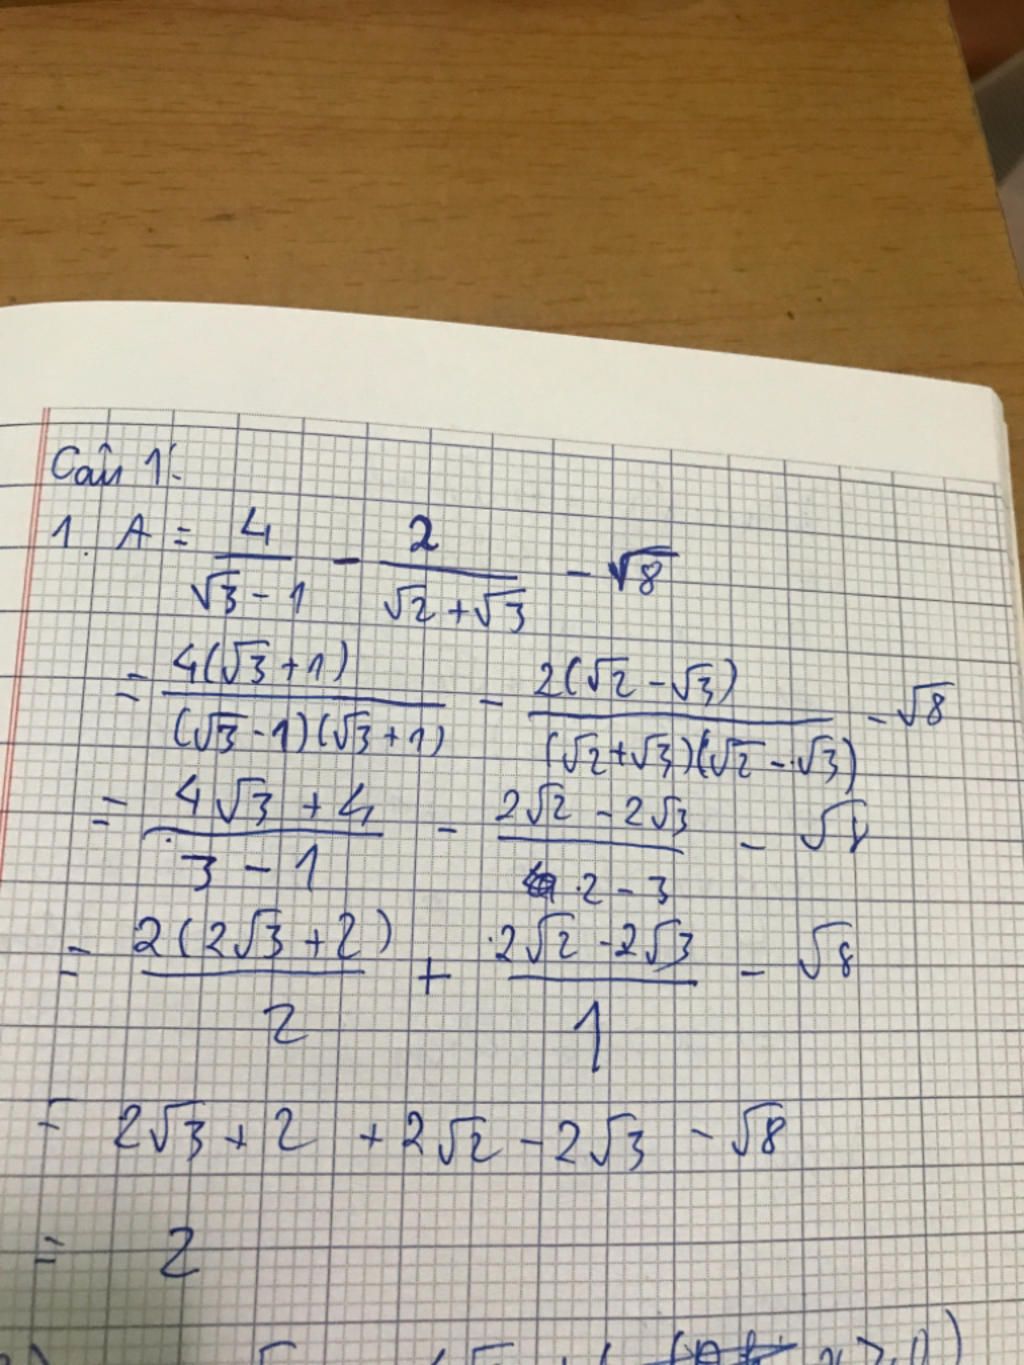 Câu 1:
1. A = 4/(√3 - 1) - 2/(√2 + √3) - √8
= 4(√3 + 1)/((√3 - 1)(√3 + 1)) - 2(√2 - √3)/((√2 + √3)(√2 - √3)) - √8
= (4√3 + 4)/(3 - 1) - (2√2 - 2√3)/(2 - 3) - √8
= 2(2√3 + 2)/2 + (2√2 - 2√3)/1 - √8
= 2√3 + 2 + 2√2 - 2√3 - √8
= 2